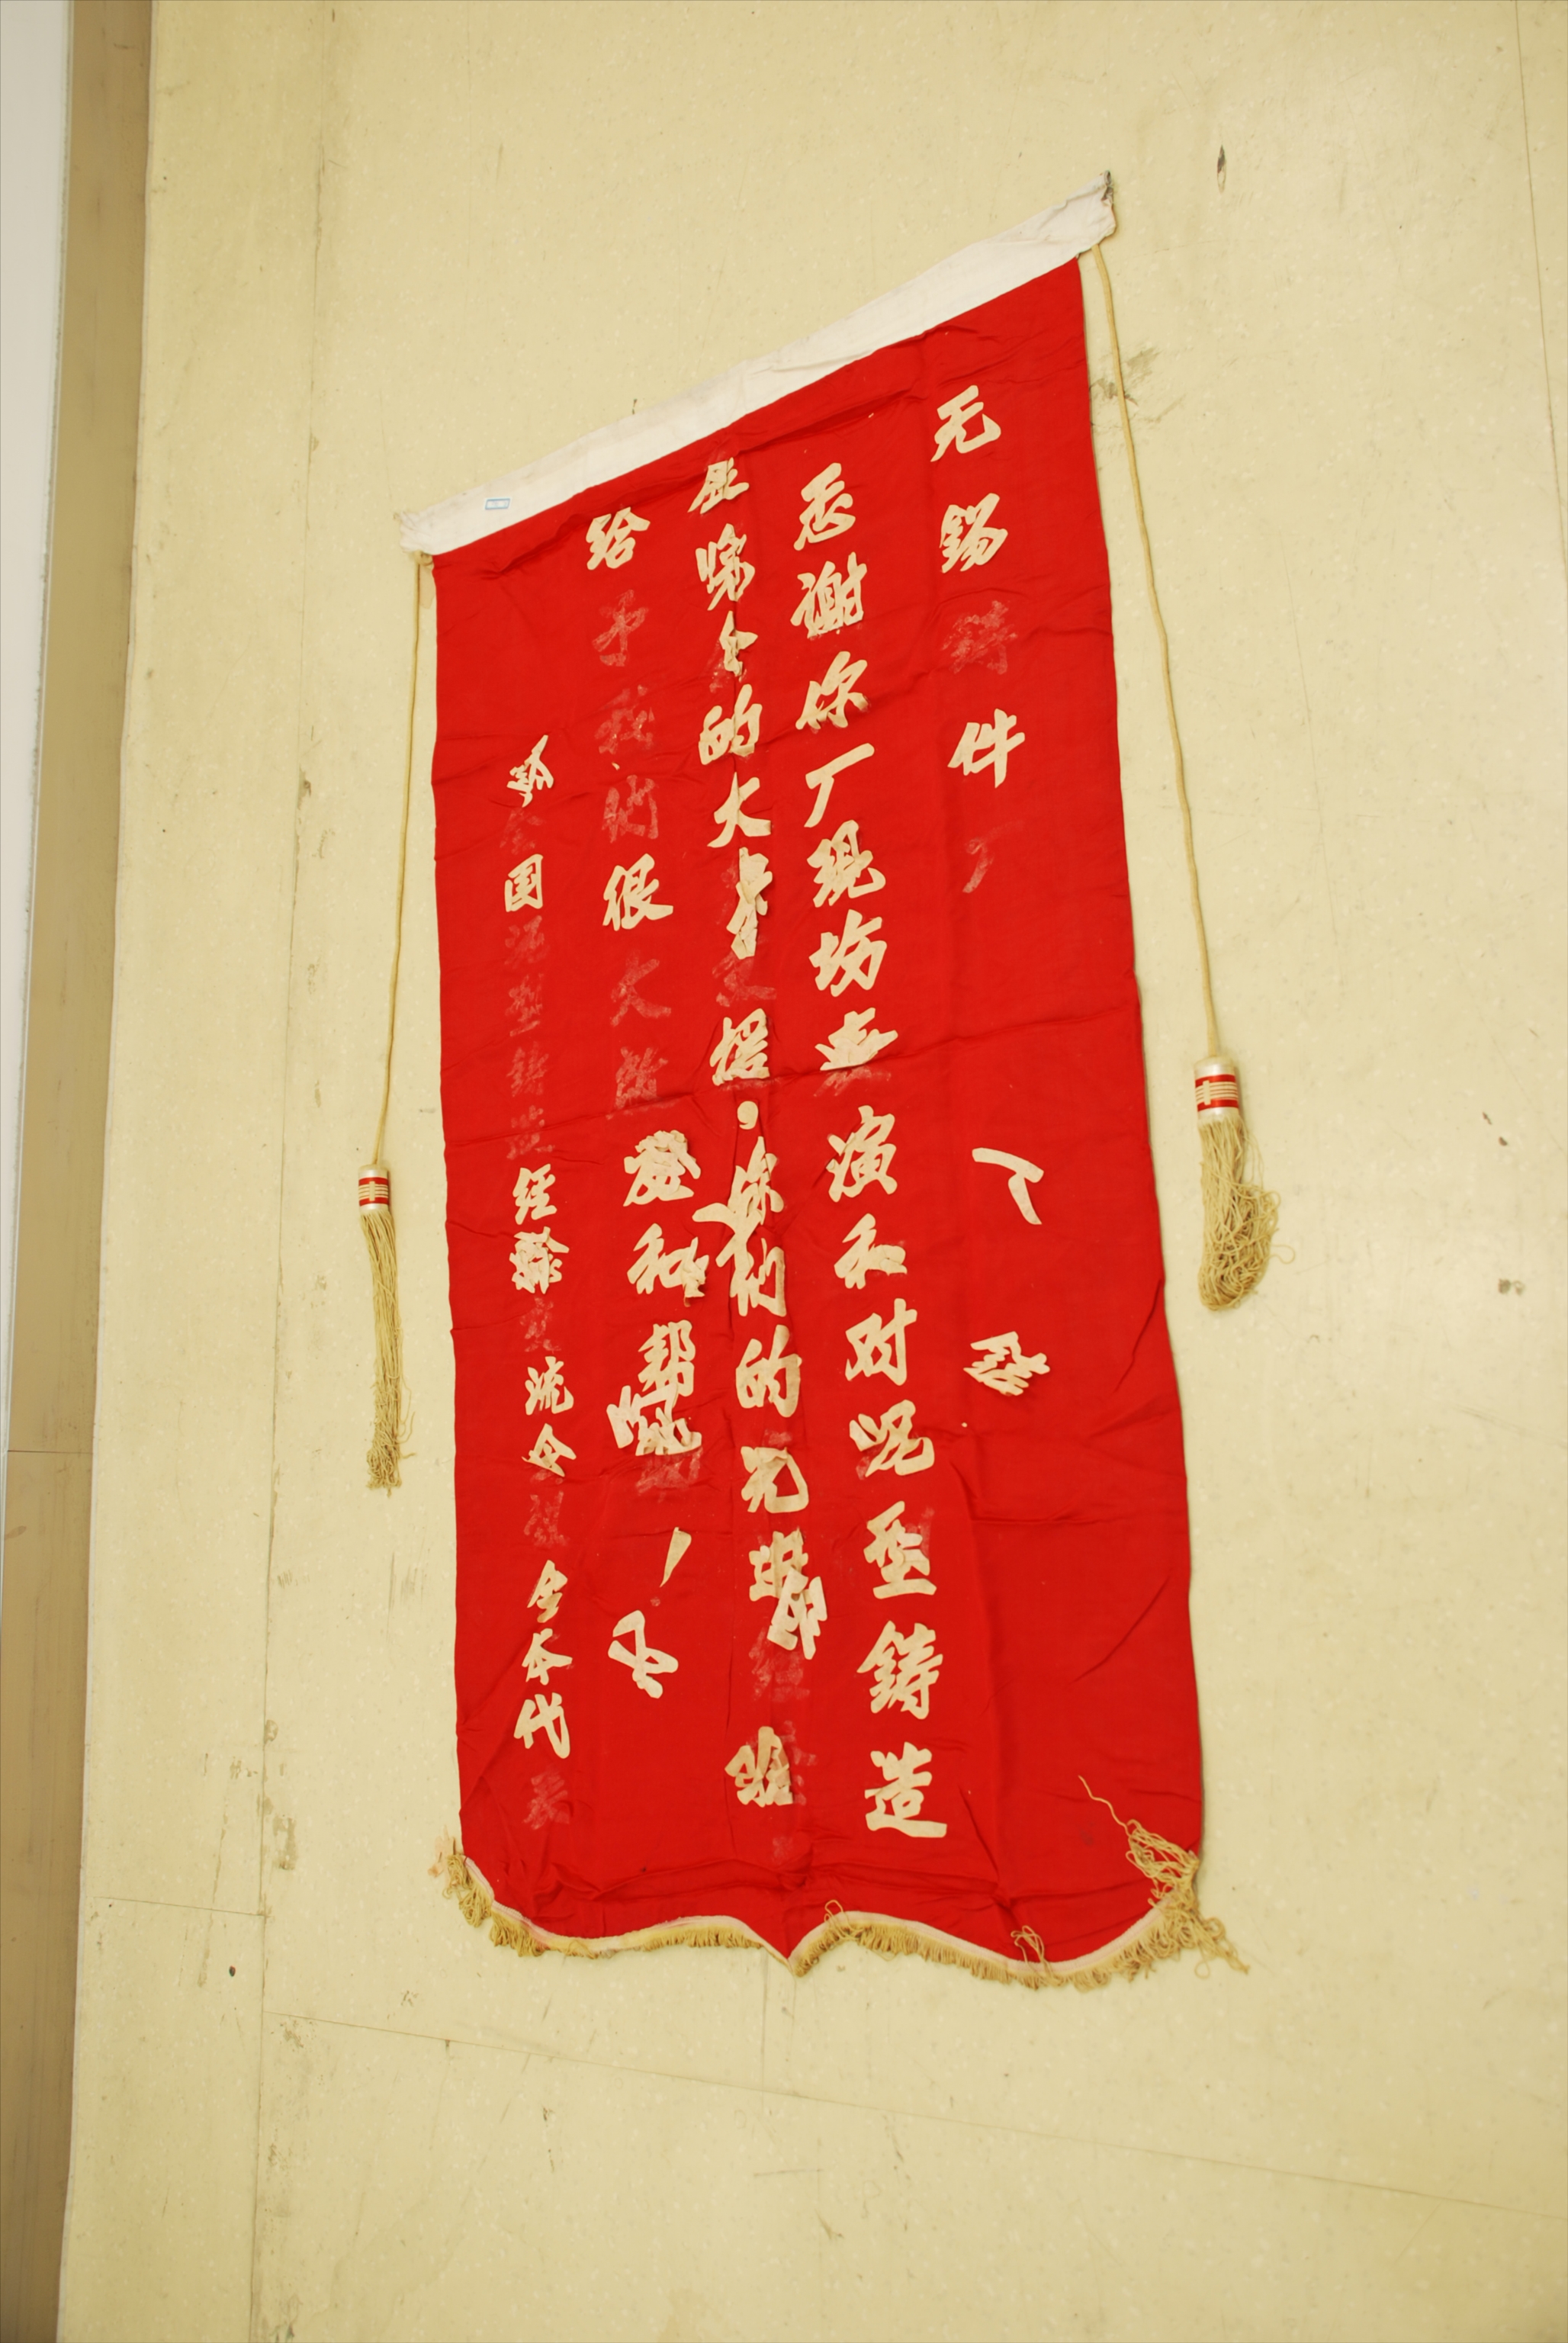 无锡铸件厂
谢你厂现场表演和对型铸造
会的大支援你们的先进经
给予我们很大的发和帮助!
全国泥型铸造经验交流会全体代表